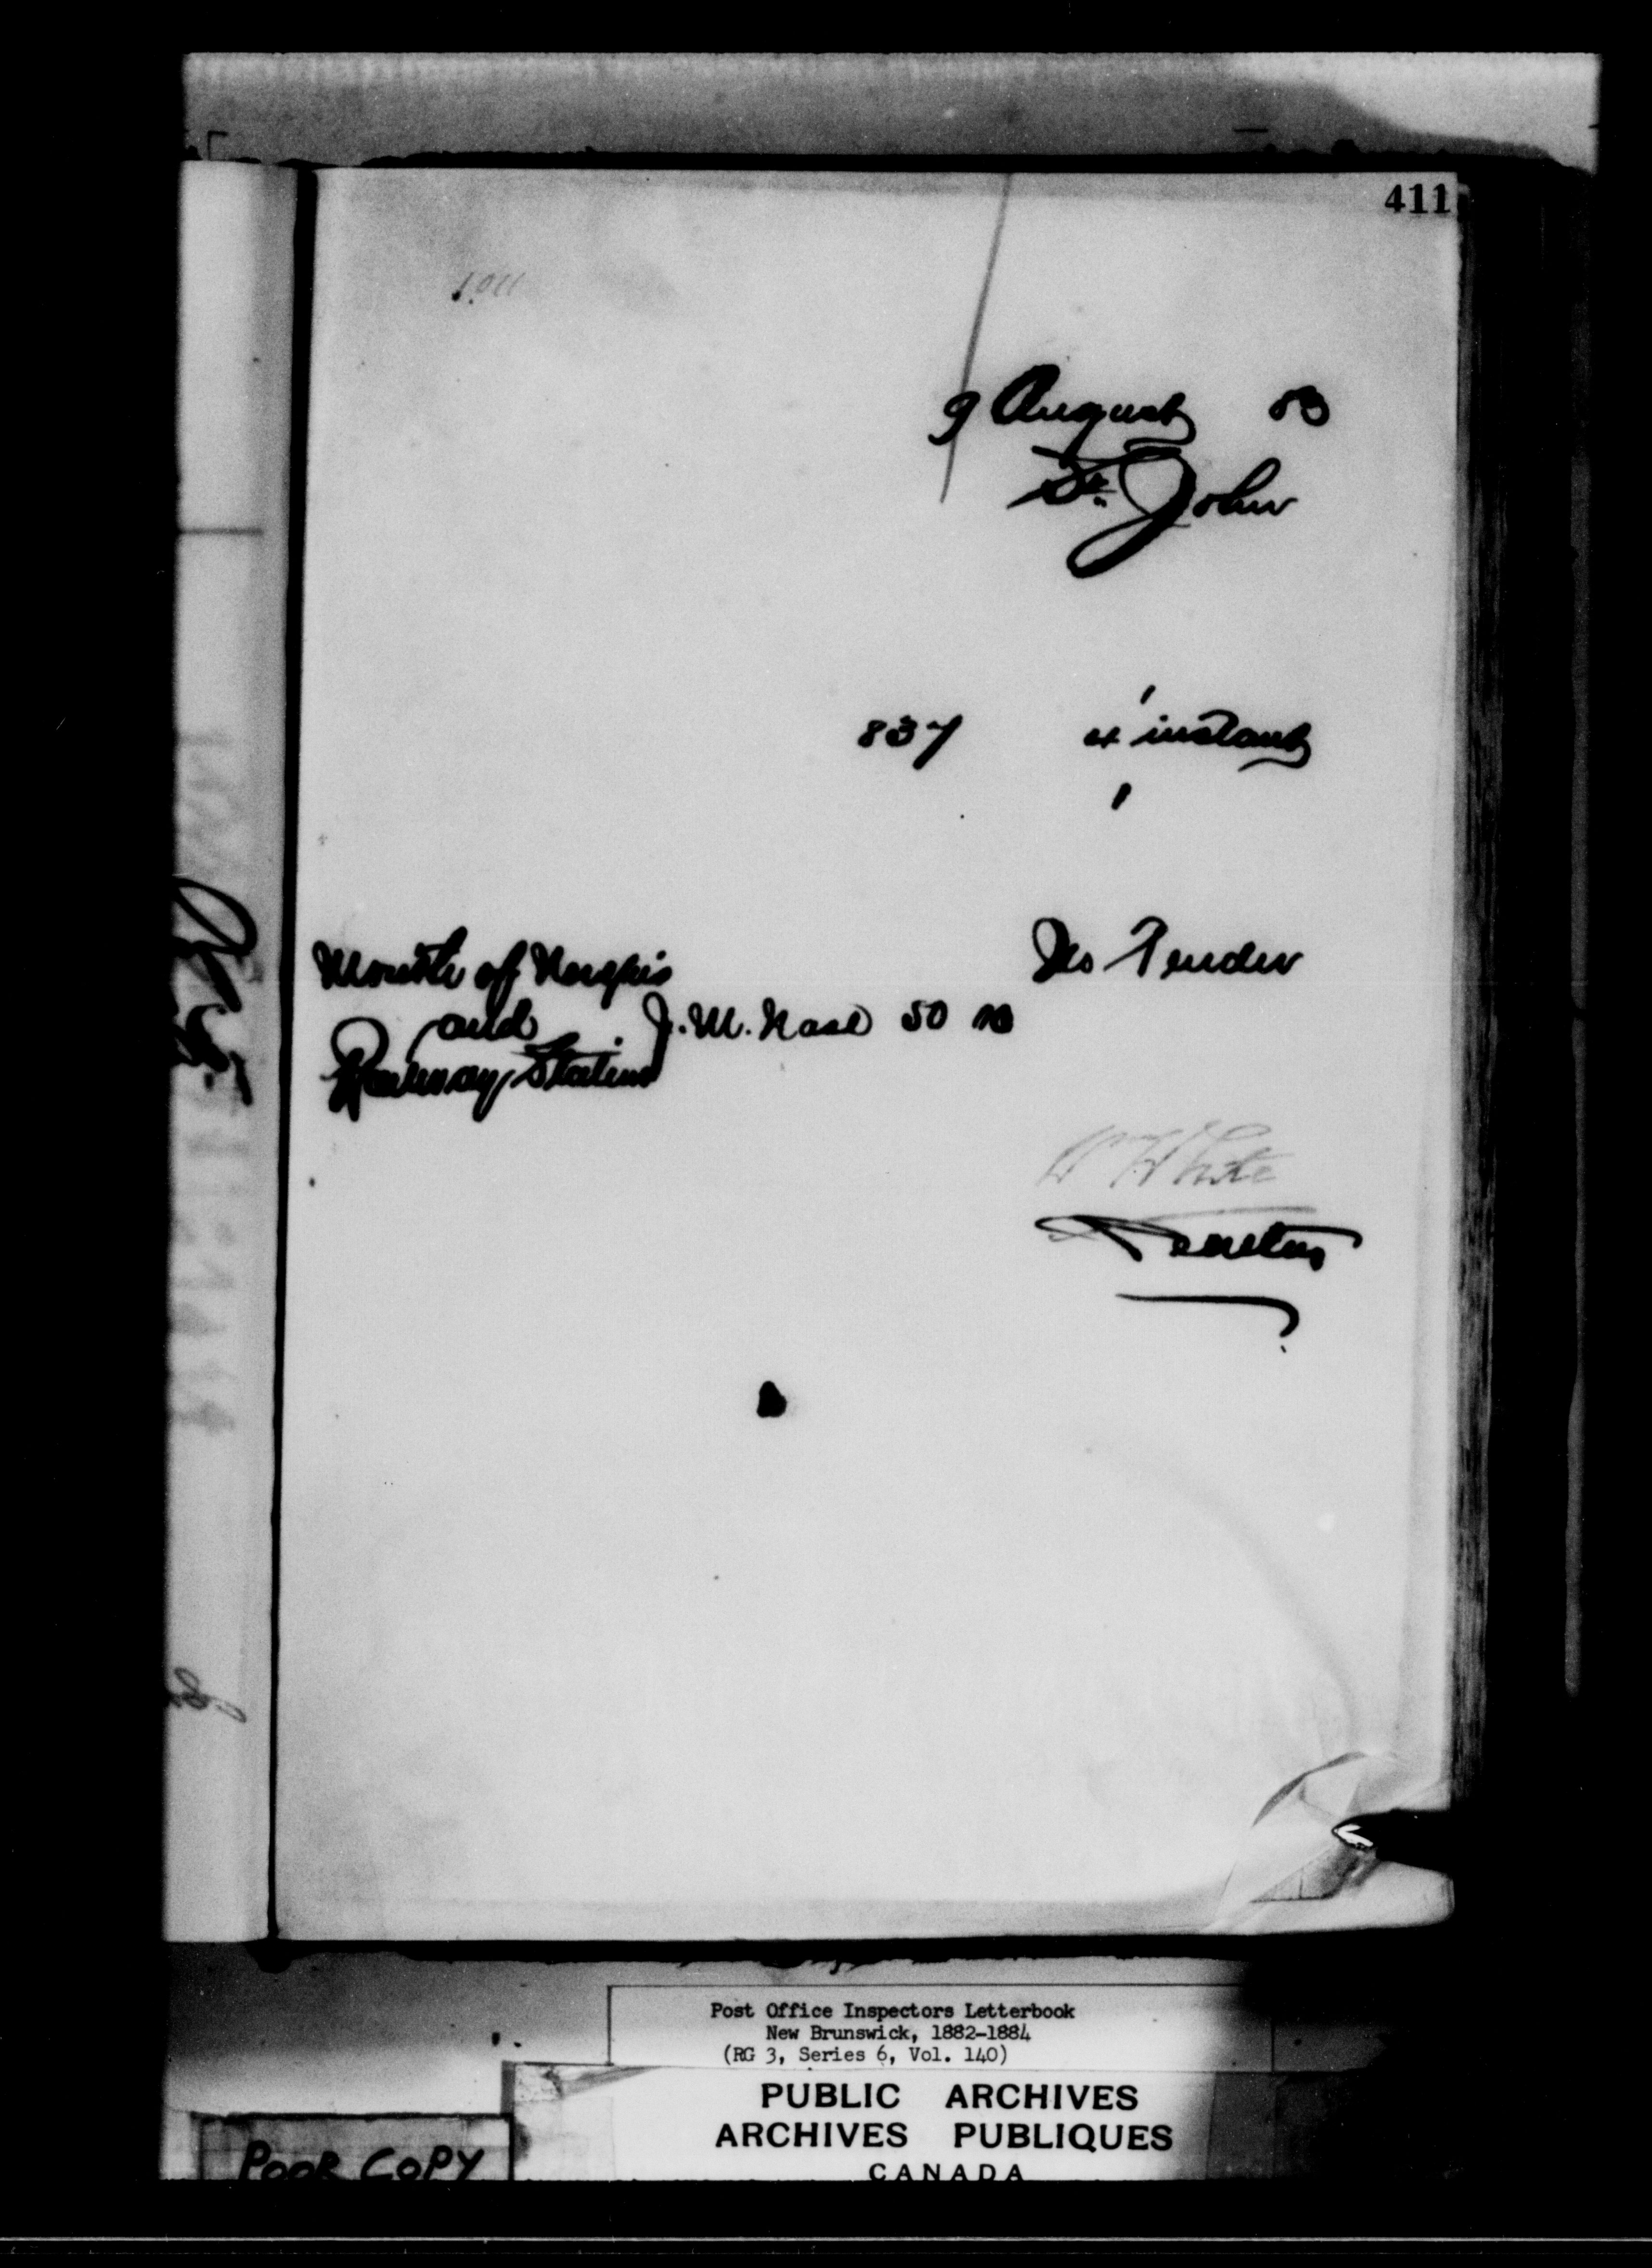 411
9 August 83
St. John
837 4 instant
Mouth of Nerepis
No Tender
and J. M. Nase 50 00
Railway Station
W White
Secretary
Post Office Inspectors Letterbook
New Brunswick, 1882-1884
(RG 3, Series 6, Vol. 140)
PUBLIC ARCHIVES
ARCHIVES PUBLIQUES
CANADA
POOR COPY